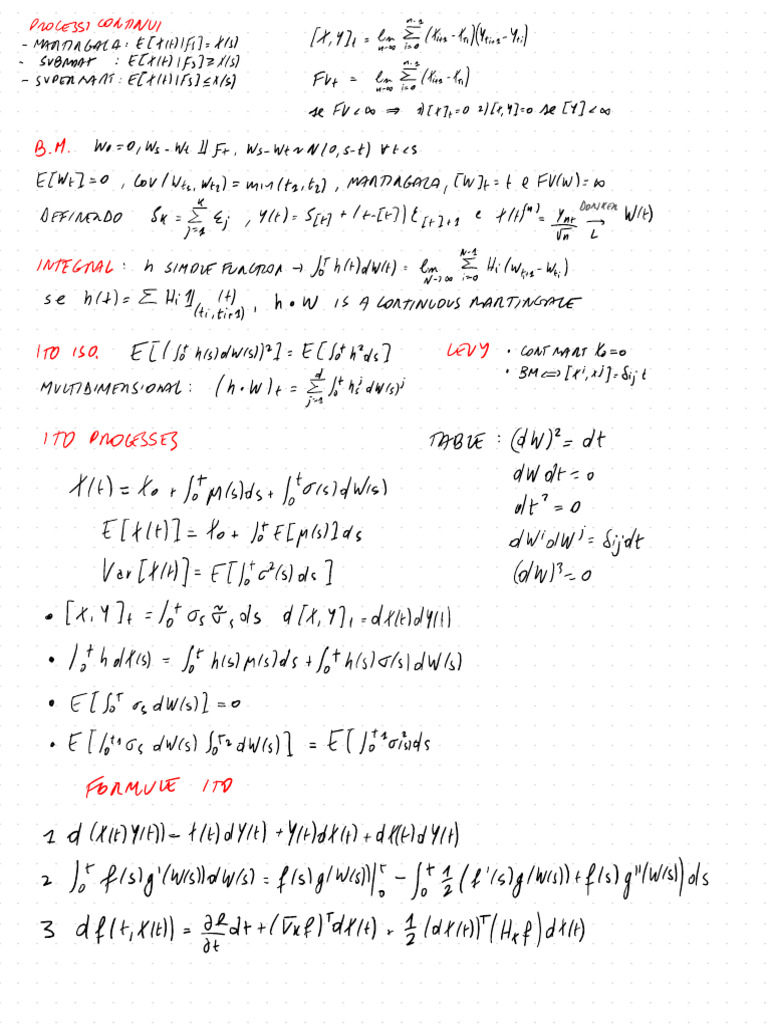 PROCESSI CONTINUI
- MARTINGALA: E[X(t)|Fs]=X(s)
- SUBMART : E[X(t)|Fs]≥X(s)
- SUPERMART: E[X(t)|Fs]≤X(s)
[X,Y]t = lim n→∞ Σ i=0 n-1 (Xti+1-Xti)(Yti+1-Yti)
FVt = lim n→∞ Σ i=0 n-1 (Xti+1-Xti)
se FV<∞ ⇒ 1)[X]t=0 2)[X,Y]=0 se [Y]<∞
B.M. W0=0, Ws-Wt ⫫ Ft, Ws-Wt~N(0,s-t) ∀t<s
E[Wt]=0, Cov(Wt1,Wt2)=min(t1,t2), MARTINGALA, [W]t=t e FV(W)=∞
DEFINENDO Sk = Σ j=1 k εj, Y(t)=S[t]+(t-[t])ε[t]+1 e X(t)^(n) = Ynt/√n → DONSKER L W(t)
INTEGRAL: h SIMPLE FUNCTION → ∫0^T h(t)dW(t) = lim N→∞ Σ i=0 N-1 Hi(Wti+1-Wti)
se h(t)= Σ Hi 1(ti,ti+1)(t), h•W IS A CONTINUOUS MARTINGALE
ITO ISO. E[(∫0^t h(s)dW(s))²]=E[∫0^t h²ds]
MULTIDIMENSIONAL: (h•W)t = Σ j=1 d ∫0^t hs^j dW(s)^j
LEVY • CONT MART X0=0
• BM⇔[X^i,X^j]=δij t
ITO PROCESSES
X(t)=X0+∫0^t μ(s)ds+∫0^t σ(s)dW(s)
E[X(t)]=X0+∫0^t E[μ(s)]ds
Var[X(t)]=E[∫0^t σ²(s)ds]
TABLE: (dW)²=dt
dWdt=0
dt²=0
dW^i dW^j=δij dt
(dW)³=0
• [X,Y]t=∫0^t σs σ̃s ds d[X,Y]t=dX(t)dY(t)
• ∫0^t h dX(s) = ∫0^t h(s)μ(s)ds+∫0^t h(s)σ(s)dW(s)
• E[∫0^T σs dW(s)]=0
• E[∫0^t1 σs dW(s) ∫0^T2 dW(s)] = E[∫0^t1 σ²(s)ds
FORMULE ITO
1 d(X(t)Y(t))=X(t)dY(t)+Y(t)dX(t)+dX(t)dY(t)
2 ∫0^t f(s)g'(W(s))dW(s)=f(s)g(W(s))|0^T - ∫0^t 1/2(f'(s)g(W(s))+f(s)g''(W(s))ds
3 df(t,X(t)) = ∂f/∂t dt+(∇xf)^T dX(t)+1/2(dX(t))^T(Hxf)dX(t)